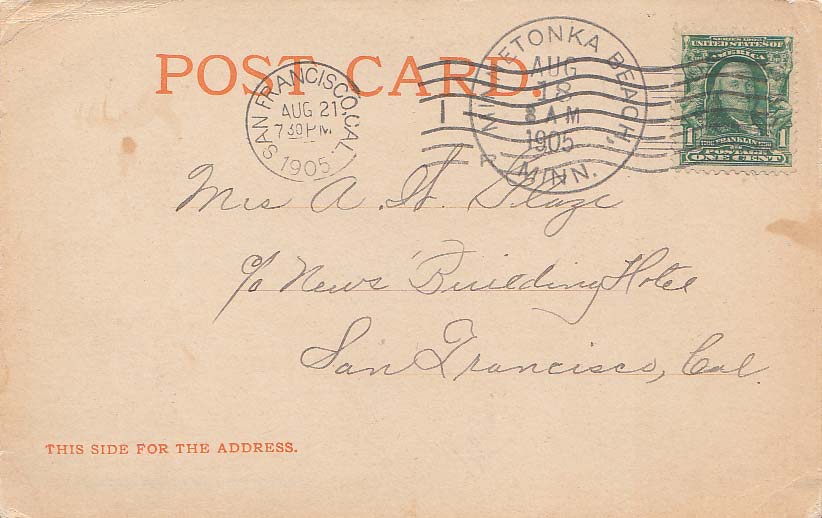 POST CARD.
SAN FRANCISCO, CAL.
AUG 21
7 30 PM
1905
MINNETONKA BEACH, MINN.
AUG
18
8 AM
1905
1
SERIES 1902
UNITED STATES OF
AMERICA
1 FRANKLIN 1
POSTAGE
ONE CENT
Mrs A. W.
c/o News Building Hotel
San Francisco, Cal.
THIS SIDE FOR THE ADDRESS.